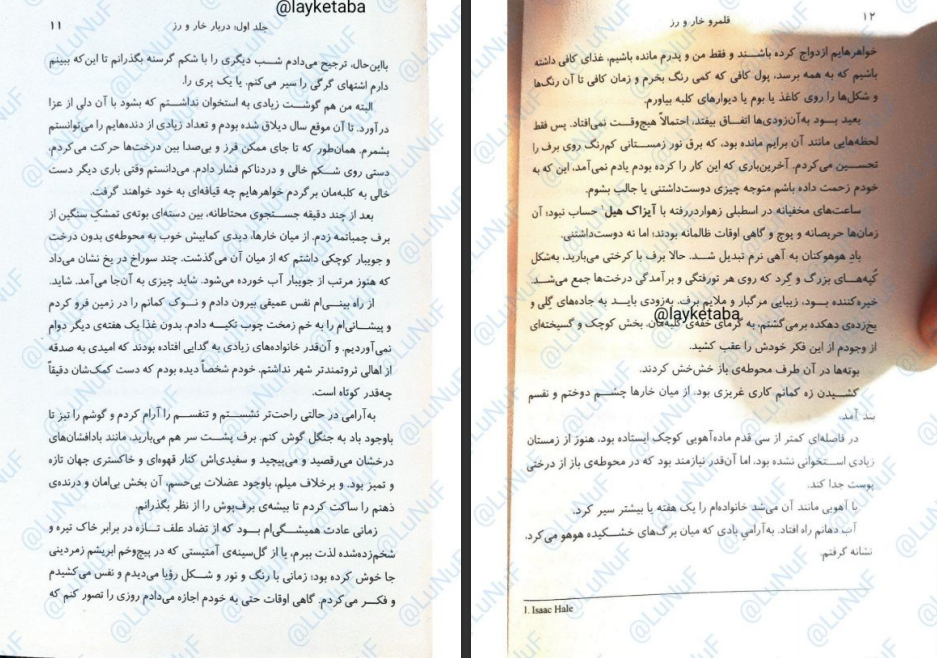 @layketaba
جلد اول: دربار خار و رز
۱۱
بااین‌حال، ترجیح می‌دادم شب دیگری را با شکم گرسنه بگذرانم تا این‌که ببینم
دارم اشتهای گرگی را سیر می‌کنم، یا یک پری را.
البته من هم گوشت زیادی به استخوان نداشتم که بشود با آن دلی از عزا
درآورد. تا آن موقع سال دیلاق شده بودم و تعداد زیادی از دنده‌هایم را می‌توانستم
بشمرم. همان‌طور که تا جای ممکن فرز و بی‌صدا بین درخت‌ها حرکت می‌کردم،
دستی روی شکم خالی و دردناکم فشار دادم. می‌دانستم وقتی باری دیگر دست
خالی به کلبه‌مان برگردم خواهرهایم چه قیافه‌ای به خود خواهند گرفت.
بعد از چند دقیقه جستجوی محتاطانه، بین دسته‌ای بوته‌ی تمشکِ سنگین از
برف چمباتمه زدم. از میان خارها، دیدی کمابیش خوب به محوطه‌ی بدون درخت
و جویبار کوچکی داشتم که از میان آن می‌گذشت. چند سوراخ در یخ نشان می‌داد
که هنوز مرتب از جویبار آب خورده می‌شود. شاید چیزی به آن‌جا می‌آمد. شاید.
از راه بینی‌ام نفس عمیقی بیرون دادم و نوک کمانم را در زمین فرو کردم
و پیشانی‌ام را به خم زمخت چوب تکیه دادم. بدون غذا یک هفته‌ی دیگر دوام
نمی‌آوردیم. و آن‌قدر خانواده‌های زیادی به گدایی افتاده بودند که امیدی به صدقه
از اهالی ثروتمندتر شهر نداشتم. خودم شخصاً دیده بودم که دست کمک‌شان دقیقاً
چه‌قدر کوتاه است.
به‌آرامی در حالتی راحت‌تر نشستم و تنفسم را آرام کردم و گوشم را تیز تا
باوجود باد به جنگل گوش کنم. برف پشت سر هم می‌بارید، مانند بادافشان‌های
درخشان می‌رقصید و می‌پیچید و سفیدی‌اش کنار قهوه‌ای و خاکستری جهان تازه
و تمیز بود. و برخلاف میلم، باوجود عضلات بی‌حسم، آن بخش بی‌امان و درنده‌ی
ذهنم را ساکت کردم تا بیشه‌ی برف‌پوش را از نظر بگذرانم.
زمانی عادت همیشگی‌ام بود که از تضاد علف تازه در برابر خاک تیره و
شخم‌زده‌شده لذت ببرم، یا از گل‌سینه‌ی آمتیستی که در پیچ‌وخم ابریشم زمردینی
جا خوش کرده بود؛ زمانی با رنگ و نور و شکل رؤیا می‌دیدم و نفس می‌کشیدم
و فکر می‌کردم. گاهی اوقات حتی به خودم اجازه می‌دادم روزی را تصور کنم که
۱۲
قلمرو خار و رز
خواهرهایم ازدواج کرده باشند و فقط من و پدرم مانده باشیم، غذای کافی داشته
باشیم که به همه برسد، پول کافی که کمی رنگ بخرم و زمان کافی تا آن رنگ‌ها
و شکل‌ها را روی کاغذ یا بوم یا دیوارهای کلبه بیاورم.
بعید بود به‌آن‌زودی‌ها اتفاق بیفتد، احتمالاً هیچ‌وقت نمی‌افتاد. پس فقط
لحظه‌هایی مانند آن برایم مانده بود، که برق نور زمستانی کم‌رنگ روی برف را
تحسین می‌کردم. آخرین‌باری که این کار را کرده بودم یادم نمی‌آمد، این که به
خودم زحمت داده باشم متوجه چیزی دوست‌داشتنی یا جالب بشوم.
ساعت‌های مخفیانه در اسطبلی زهواردررفته با آیزاک هیل¹ حساب نبود؛ آن
زمان‌ها حریصانه و پوچ و گاهی اوقات ظالمانه بودند؛ اما نه دوست‌داشتنی.
بادِ هوهوکنان به آهی نرم تبدیل شد. حالا برف با کرختی می‌بارید، به‌شکل
کُپه‌های بزرگ و گِرد که روی هر تورفتگی و برآمدگی درخت‌ها جمع می‌شد.
خیره‌کننده بود، زیبایی مرگبار و ملایم برف. به‌زودی باید به جاده‌های گِلی و
یخ‌زده‌ی دهکده برمی‌گشتم، به گرمای خفه‌ی کلبه‌مان. بخش کوچک و گسیخته‌ای
@layketaba
از وجودم از این فکر خودش را عقب کشید.
بوته‌ها در آن طرف محوطه‌ی باز خش‌خش کردند.
کشیدن زه کمانم کاری غریزی بود. از میان خارها چشم دوختم و نفسم
بند آمد.
در فاصله‌ای کمتر از سی قدم ماده‌آهویی کوچک ایستاده بود، هنوز از زمستان
زیادی استخوانی نشده بود، اما آن‌قدر نیازمند بود که در محوطه‌ی باز از درختی
پوست جدا کند.
با آهویی مانند آن می‌شد خانواده‌ام را یک هفته یا بیشتر سیر کرد.
آب دهانم راه افتاد. به‌آرامیِ بادی که میان برگ‌های خشکیده هوهو می‌کرد،
نشانه گرفتم.
1. Isaac Hale
@LuNuF